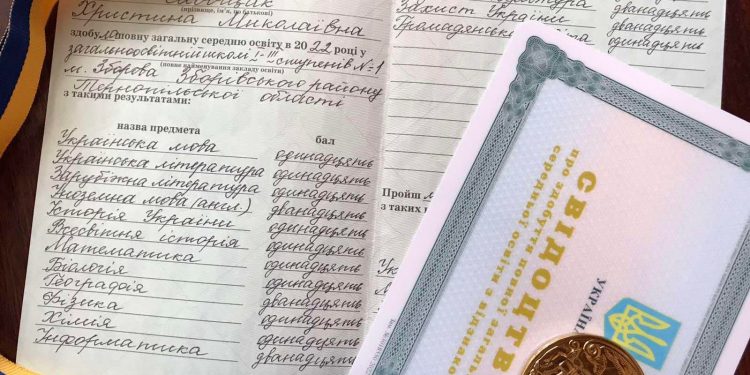 Христина Миколаївна
(прізвище, ім'я, по батькові)
здобула повну загальну середню освіту в 2022 році у
загальноосвітній школі І-ІІІ ступенів №1
(повне найменування закладу освіти)
м. Зборова Зборівського району
Тернопільської області
з такими результатами:
назва предмета бал
Українська мова одинадцять
Українська література одинадцять
Зарубіжна література одинадцять
Іноземна мова (англ.) дванадцять
Історія України одинадцять
Всесвітня історія одинадцять
Математика одинадцять
Біологія одинадцять
Географія одинадцять
Фізика дванадцять
Хімія одинадцять
Інформатика дванадцять
Захист України дванадцять
Громадянська одинадцять
Пройш
з таких
УКРАЇН
СВІДОЦТВ
про здобуття повної загаль
середньої освіти з відзнако